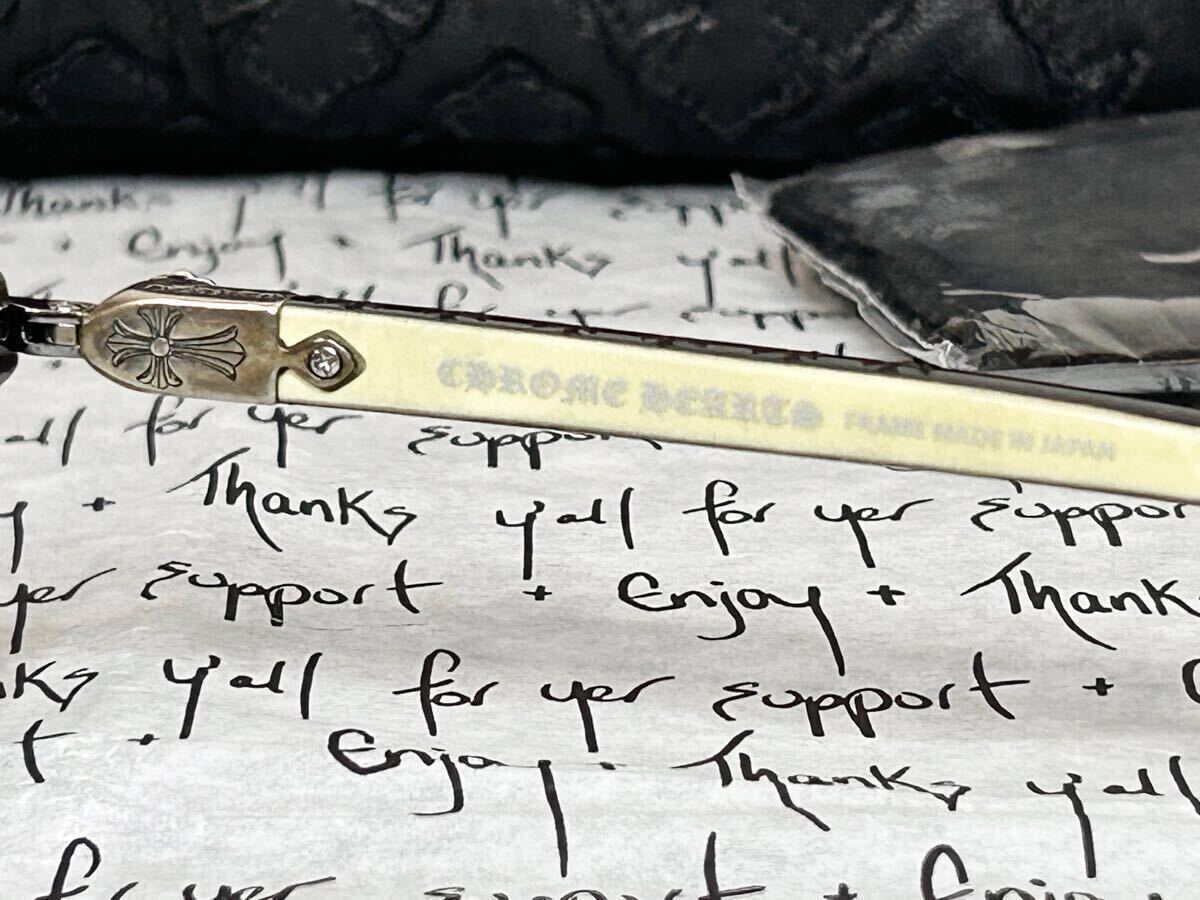 Thanks y'all for yer supp
+ Enjoy + Thanks y'all
CHROME HEARTS FRAME MADE IN JAPAN
all for yer support
y + Thanks y'all for yer suppor
yer support + Enjoy + Thank
nks y'all for yer support +
t + Enjoy + Thanks y'all
for yer support + Enjoy